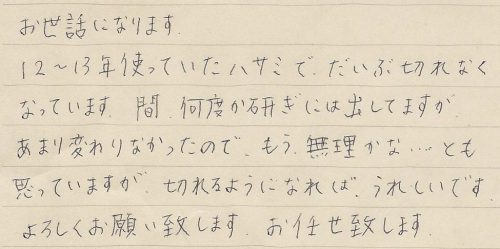 お世話になります.
12~13年使っていたハサミで.だいぶ切れなく
なっています.間.何度か研ぎには出してますが.
あまり変わりなかったので.もう.無理かな…とも
思っていますが.切れるようになれば.うれしいです.
よろしくお願い致します.お任せ致します.